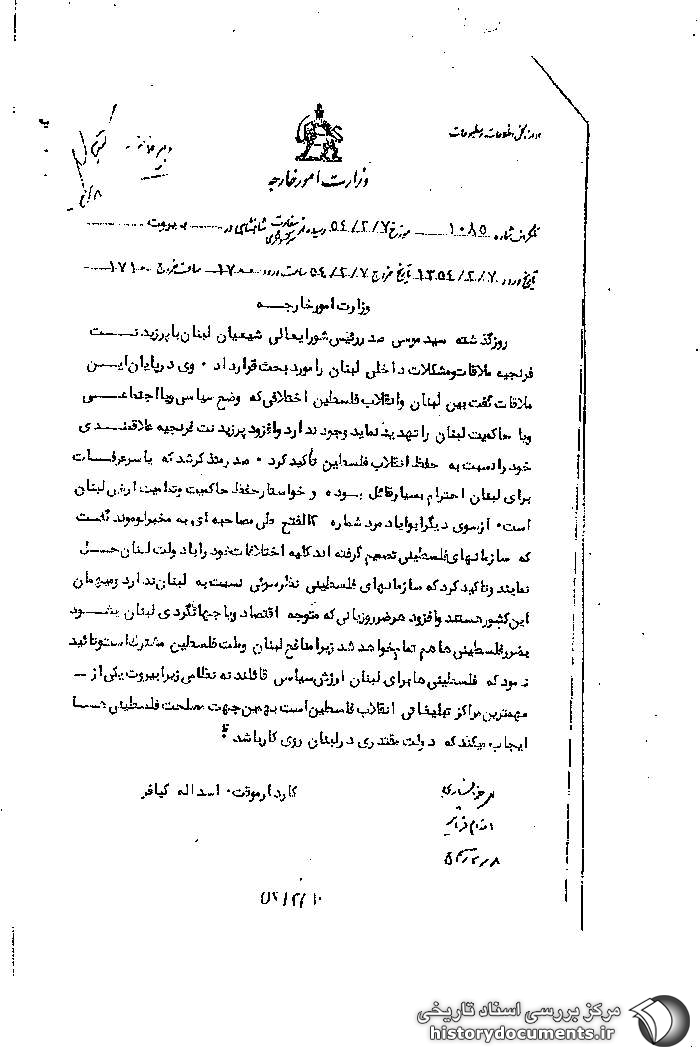 اداره کل اطلاعات و مطبوعات
وزارت امور خارجه
تلگراف شماره ۱۰۸۵ مورخ ۵۴/۲/۷ رسیده از سفارت شاهنشاهی در بیروت
سرکنسولگری
تاریخ ورود ۱۳۵۴/۲/۷ تاریخ خروج ۵۴/۲/۷ ساعت ورود ۱۷۰۰ ساعت خروج ۱۷۱۰
وزارت امور خارجه
روز گذشته سید موسی صدر رئیس شورایعالی شیعیان لبنان با پرزیدنت
فرنجیه ملاقات و مشکلات داخلی لبنان را مورد بحث قرار داد ۰ وی در پایان این
ملاقات گفت بین لبنان و انقلاب فلسطین اختلافی که وضع سیاسی و یا اجتماعی
و یا حاکمیت لبنان را تهدید نماید وجود ندارد و افزود پرزیدنت فرنجیه علاقمندی
خود را نسبت به حفظ انقلاب فلسطین تأکید کرد ۰ صدر متذکر شد که یاسر عرفات
برای لبنان احترام بسیار قائل بوده و خواستار حفظ حاکمیت و تمامیت ارضی لبنان
است۰ از سوی دیگر ابوایاد مرد شماره ۲ الفتح طی مصاحبه ای به مخبر لوموند گفت
که سازمانهای فلسطینی تصمیم گرفته اند کلیه اختلافات خود را با دولت لبنان حل
نمایند و تأکید کرد که سازمانهای فلسطینی نظر سوئی نسبت به لبنان ندارد و میهمان
این کشور هستند و افزود هر ضرر و زیانی که متوجه اقتصاد و یا جهانگردی لبنان بشود
بضرر فلسطینی ها هم تمام خواهد شد زیرا منافع لبنان و ملت فلسطین مشترک است و تائید
نمود که فلسطینی ها برای لبنان ارزش سیاسی قائلند نه نظامی زیرا بیروت یکی از
مهمترین مراکز تبلیغاتی انقلاب فلسطین است بهمین جهت مصلحت فلسطینی ها
ایجاب میکند که دولت مقتدری در لبنان روی کار باشد ۰
کاردار موقت۰ اسداله کیافر
اقدام فرمایید
۵۴/۲/۱۰
مرکز بررسی اسناد تاریخی
historydocuments.ir